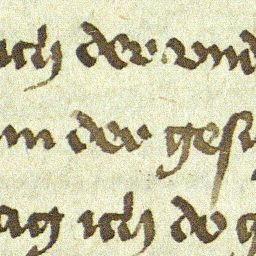 ich der vnd
in der ges
ag ich do g